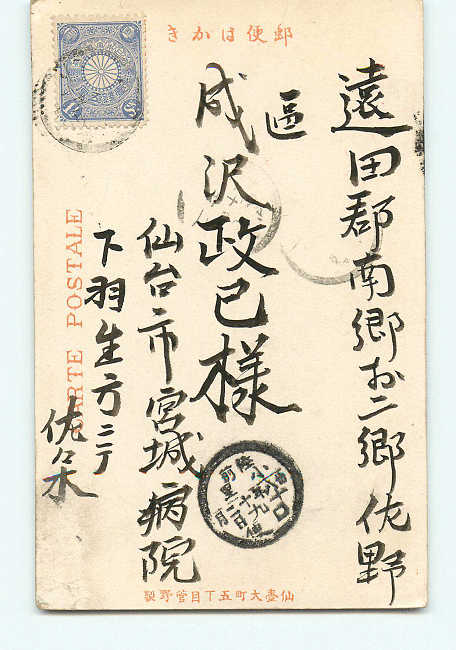 郵便はかき
遠田郡南郷村二郷佐野
區
成沢政已様
仙台市宮城病院
下羽生方ニテ
佐々木
CARTE POSTALE
仙臺大町五丁目菅野製